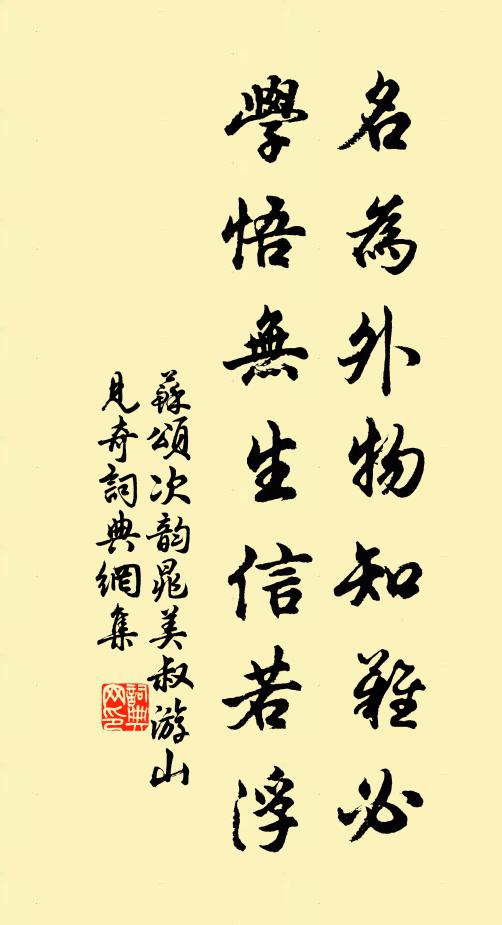 名為外物知難必
學悟無生信若浮
蘇頌次韵晁美叔游山
見寄詞典網集
詞典
网印